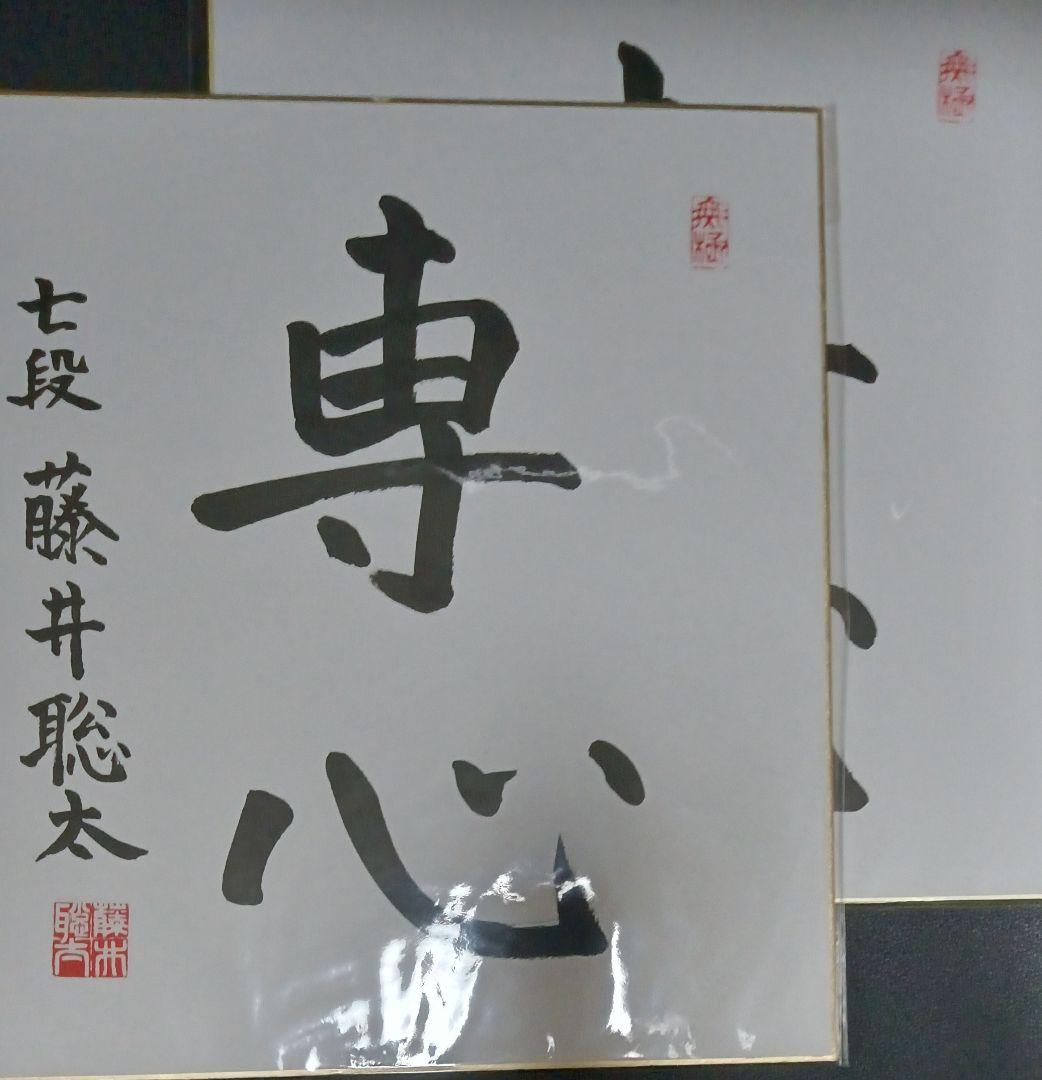 専心
七段 藤井聡太
藤井
聡太